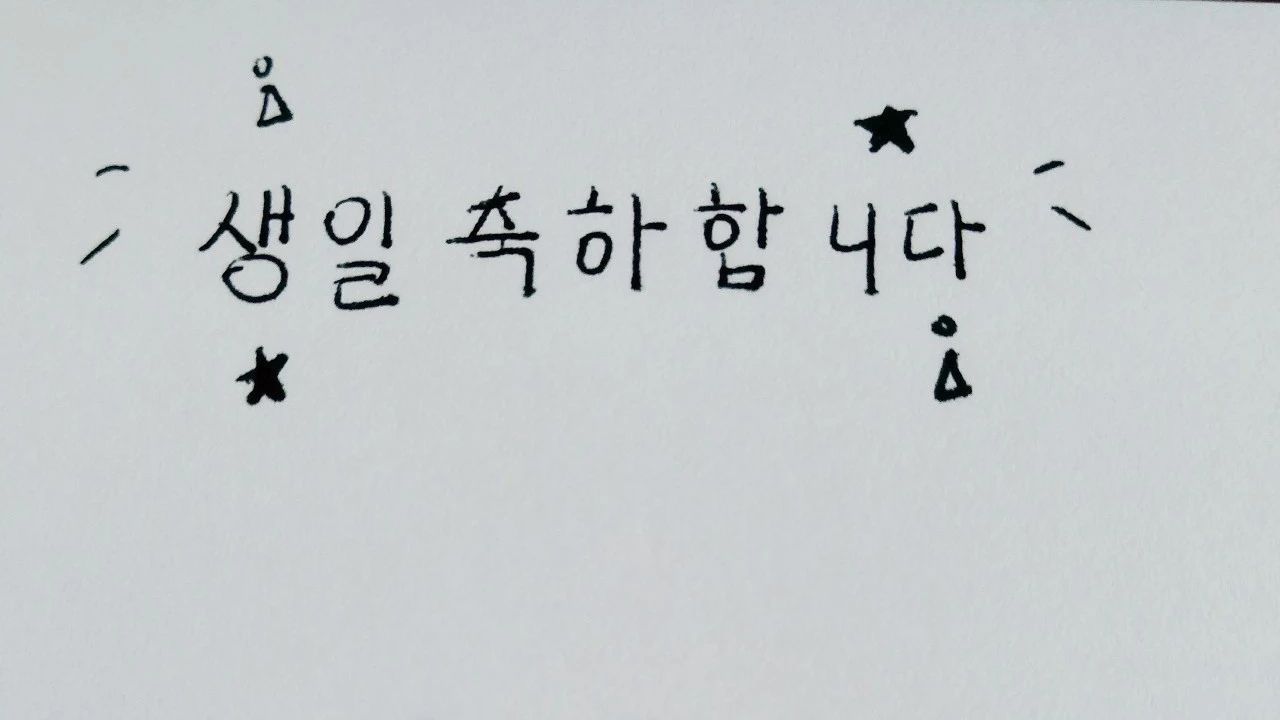 생일 축하함니다